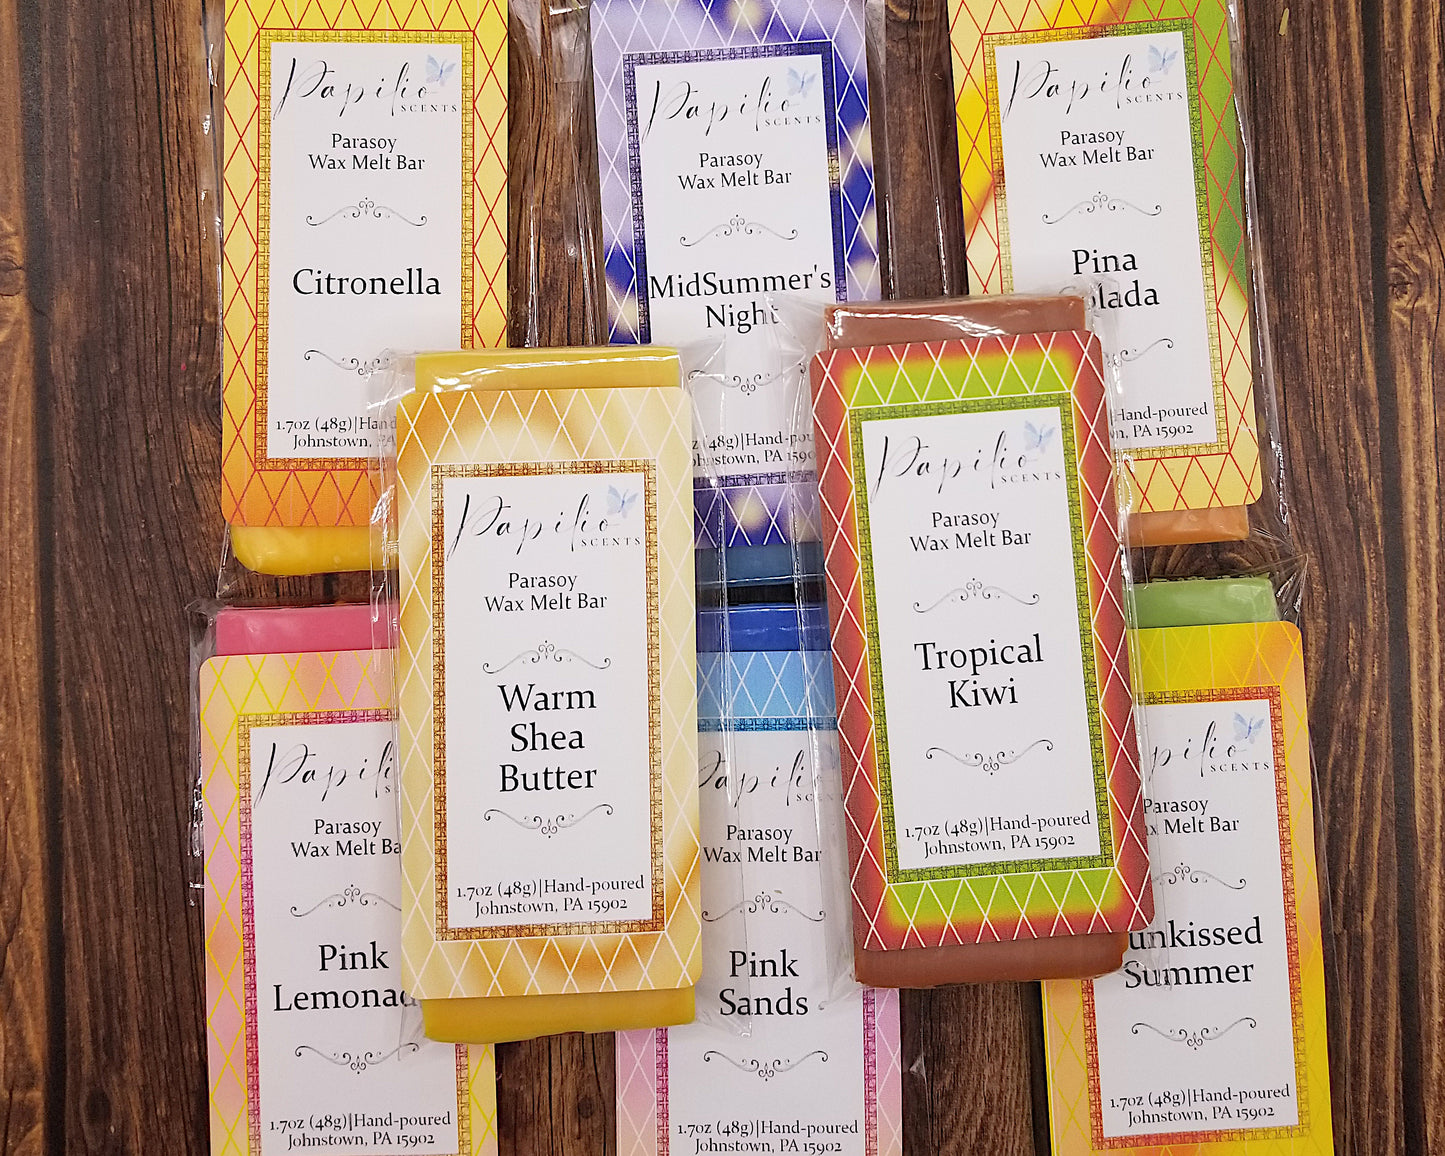 Papilio
SCENTS
Parasoy
Wax Melt Bar
Citronella
1.7oz (48g)|Hand
Johnstown, PA
Papilio
SCENTS
Parasoy
Wax Melt Bar
MidSummer's
Night
(48g)|Hand-pou
ohnstown, PA 1590
Papilio
SCENTS
Parasoy
Wax Melt Bar
Pina
olada
Hand-poured
PA 15902
Papilio
SCENTS
Parasoy
Wax Melt Bar
Warm
Shea
Butter
1.7oz (48g)|Hand-poured
Johnstown, PA 15902
Papilio
SCENTS
Parasoy
Wax Melt Bar
Tropical
Kiwi
1.7oz (48g)|Hand-poured
Johnstown, PA 15902
Papili
Parasoy
Wax Melt Ba
Pink
Lemonad
1.7oz (48g)|Hand-poured
Johnstown, PA 15902
Papilio
SCEN
Parasoy
Wax Melt Bar
Pink
Sands
1.7oz (48g)|Hand-poured
Johnstown, PA 15902
pilio
SCENTS
Parasoy
x Melt Bar
unkissed
Summer
1.7oz (48g)|Hand-poured
Johnstown, PA 15902